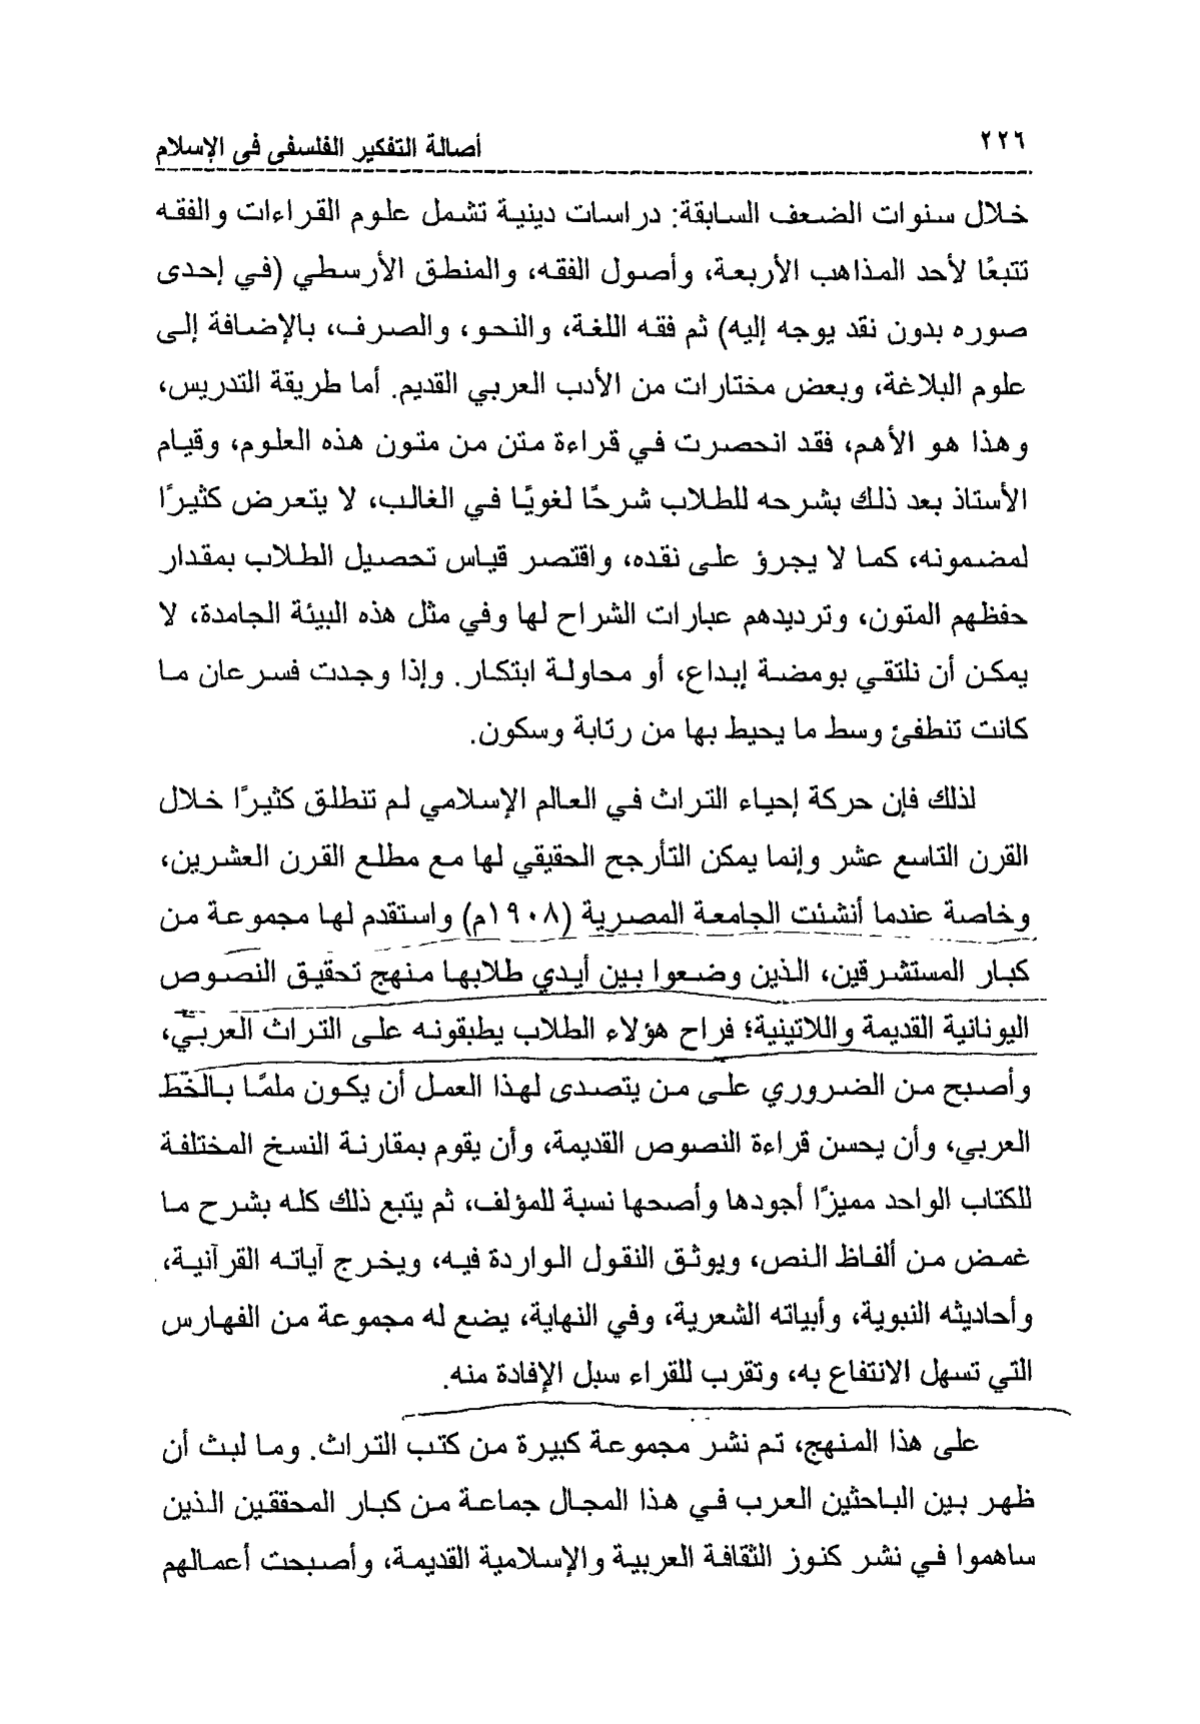 ٢٢٦ أصالة التفكير الفلسفى فى الإسلام
خلال سنوات الضعف السابقة: دراسات دينية تشمل علوم القراءات والفقه
تتبعًا لأحد المذاهب الأربعة، وأصول الفقه، والمنطق الأرسطي (في إحدى
صوره بدون نقد يوجه إليه) ثم فقه اللغة، والنحو، والصرف، بالإضافة إلى
علوم البلاغة، وبعض مختارات من الأدب العربي القديم. أما طريقة التدريس،
وهذا هو الأهم، فقد انحصرت في قراءة متن من متون هذه العلوم، وقيام
الأستاذ بعد ذلك بشرحه للطلاب شرحًا لغويًا في الغالب، لا يتعرض كثيرًا
لمضمونه، كما لا يجرؤ على نقده، واقتصر قياس تحصيل الطلاب بمقدار
حفظهم المتون، وترديدهم عبارات الشراح لها وفي مثل هذه البيئة الجامدة، لا
يمكن أن نلتقي بومضة إبداع، أو محاولة ابتكار. وإذا وجدت فسرعان ما
كانت تنطفئ وسط ما يحيط بها من رتابة وسكون.
لذلك فإن حركة إحياء التراث في العالم الإسلامي لم تنطلق كثيرًا خلال
القرن التاسع عشر وإنما يمكن التأرجح الحقيقي لها مع مطلع القرن العشرين،
وخاصة عندما أنشئت الجامعة المصرية (١٩٠٨م) واستقدم لها مجموعة من
كبار المستشرقين، الذين وضعوا بين أيدي طلابها منهج تحقيق النصوص
اليونانية القديمة واللاتينية؛ فراح هؤلاء الطلاب يطبقونه على التراث العربي،
وأصبح من الضروري على من يتصدى لهذا العمل أن يكون ملمًا بالخط
العربي، وأن يحسن قراءة النصوص القديمة، وأن يقوم بمقارنة النسخ المختلفة
للكتاب الواحد مميزًا أجودها وأصحها نسبة للمؤلف، ثم يتبع ذلك كله بشرح ما
غمض من ألفاظ النص، ويوثق النقول الواردة فيه، ويخرج آياته القرآنية،
وأحاديثه النبوية، وأبياته الشعرية، وفي النهاية، يضع له مجموعة من الفهارس
التي تسهل الانتفاع به، وتقرب للقراء سبل الإفادة منه.
على هذا المنهج، تم نشر مجموعة كبيرة من كتب التراث. وما لبث أن
ظهر بين الباحثين العرب في هذا المجال جماعة من كبار المحققين الذين
ساهموا في نشر كنوز الثقافة العربية والإسلامية القديمة، وأصبحت أعمالهم